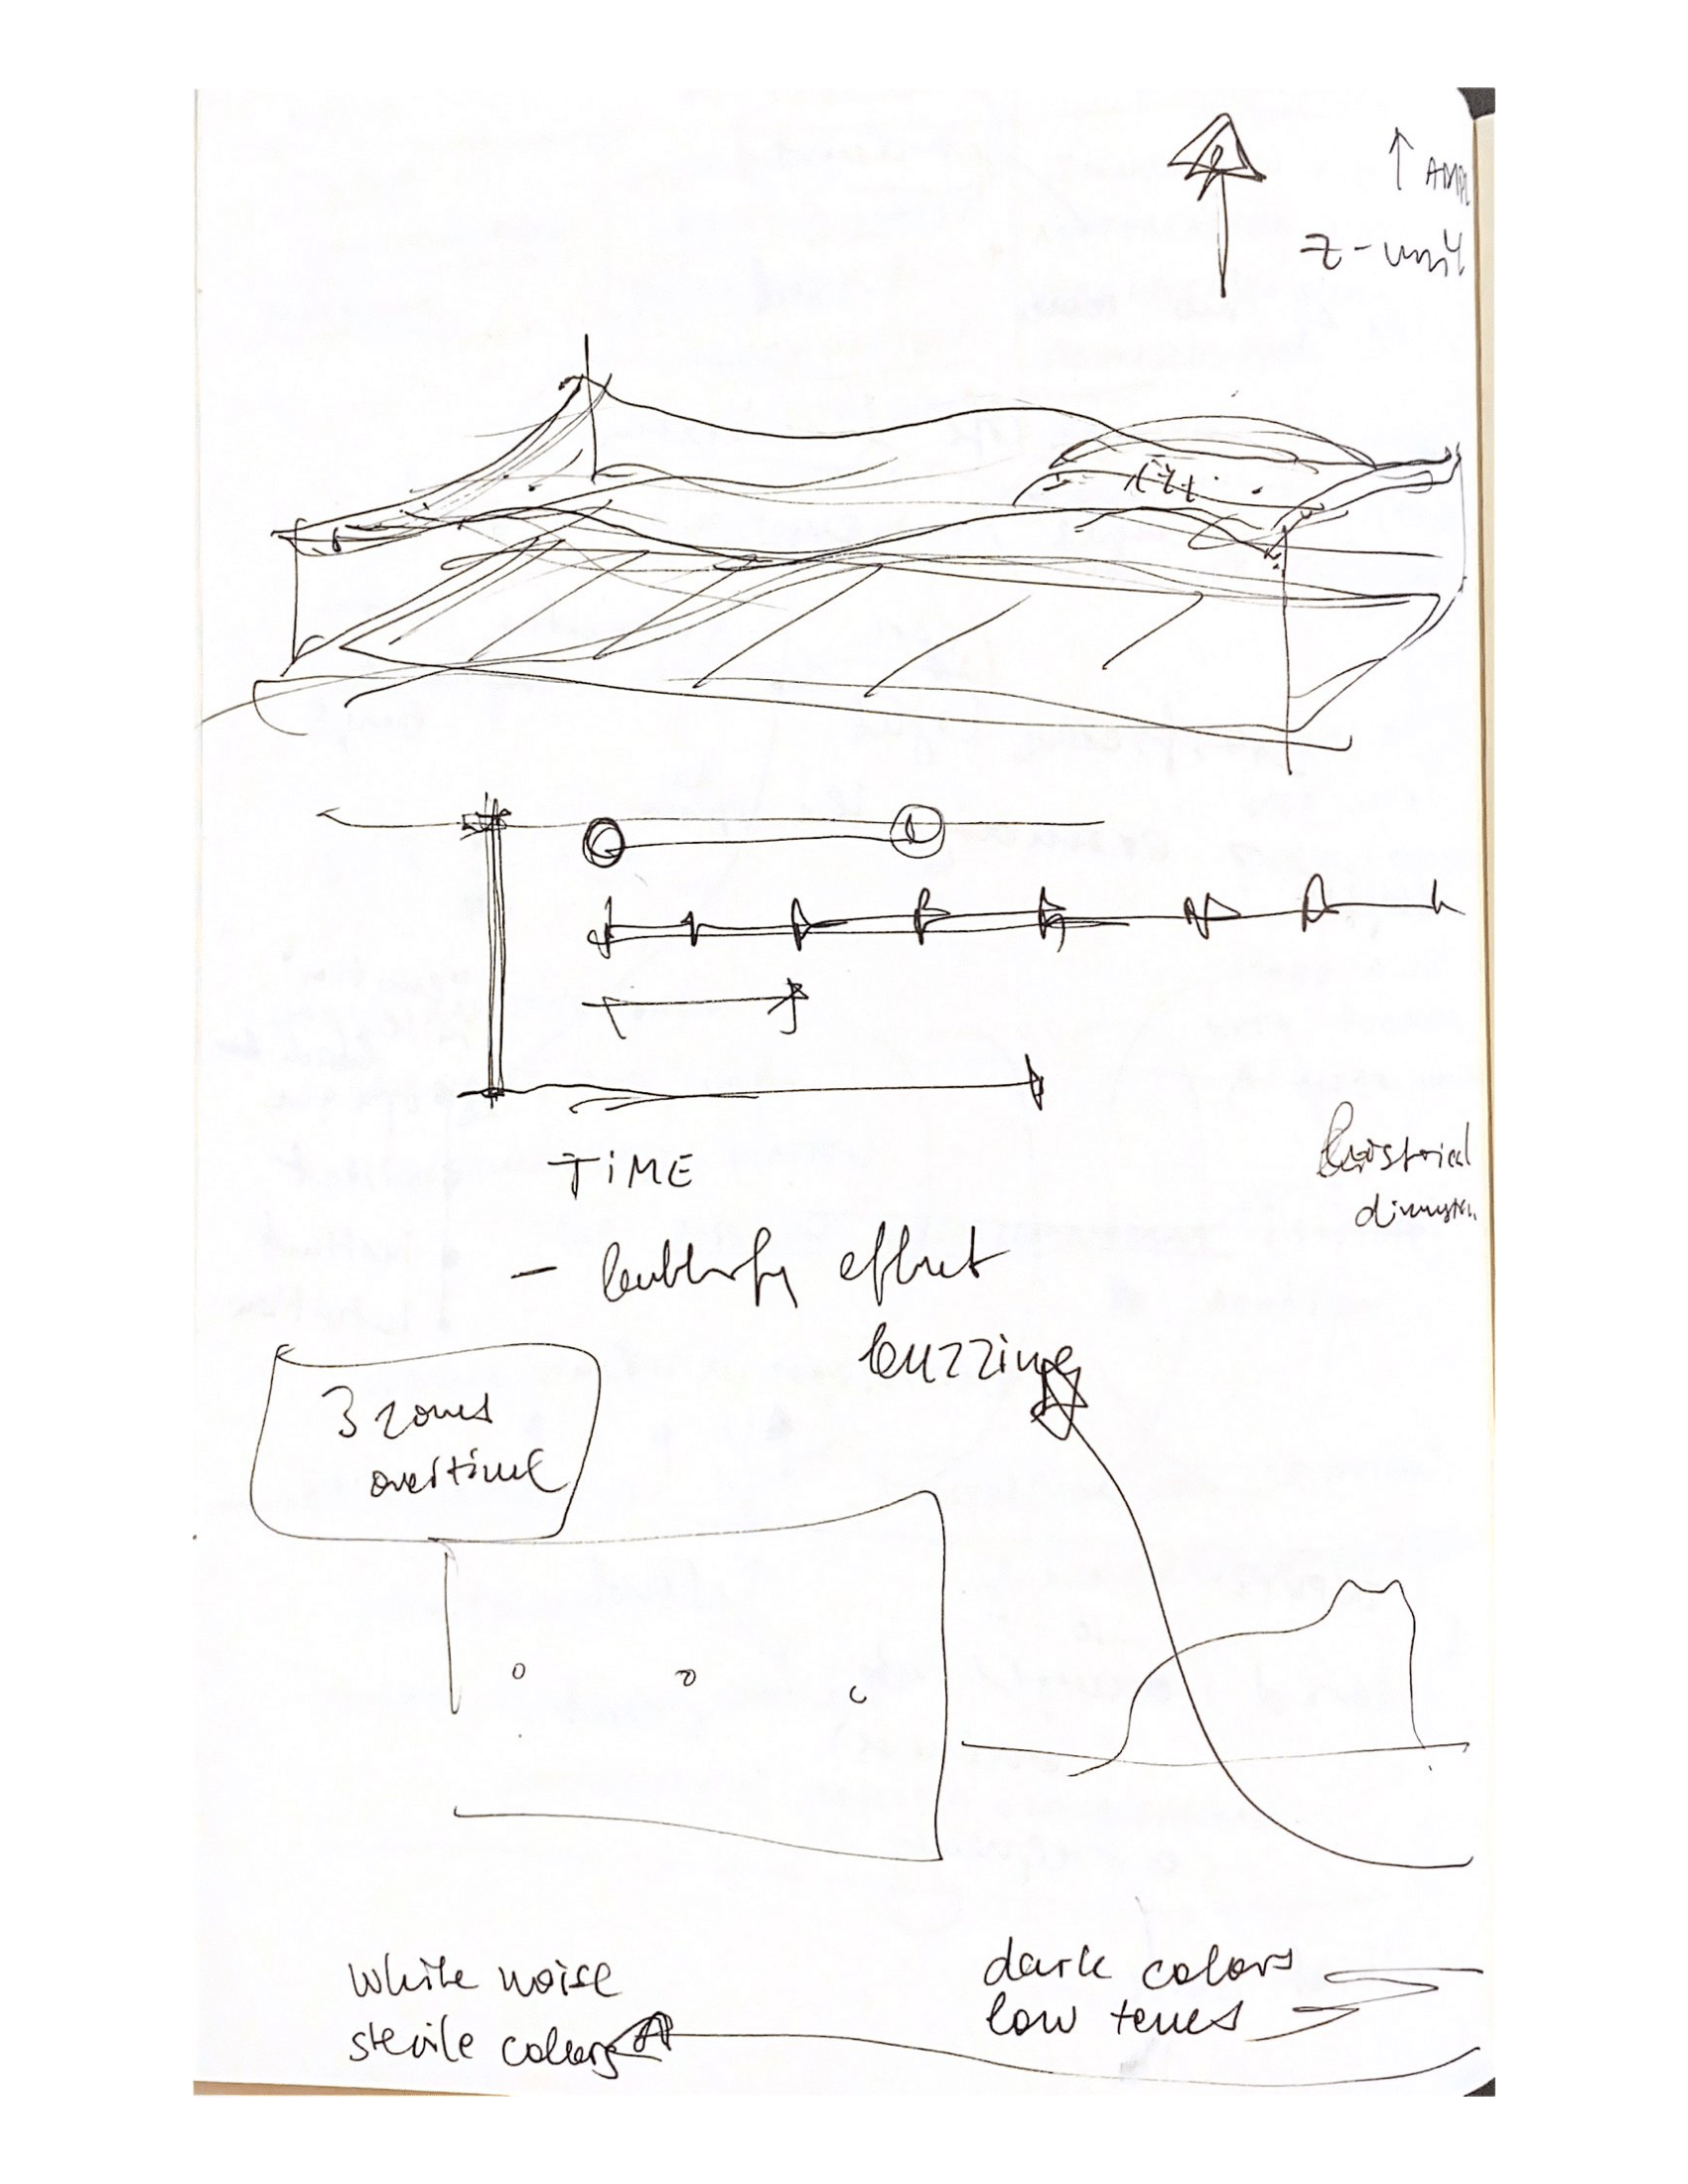 ↑ AMPL
z-unit
TiME
historical
dimension
- butterfly effect
buzzing
3 zones
overtime
white noise
sterile colors
dark colors
low tones